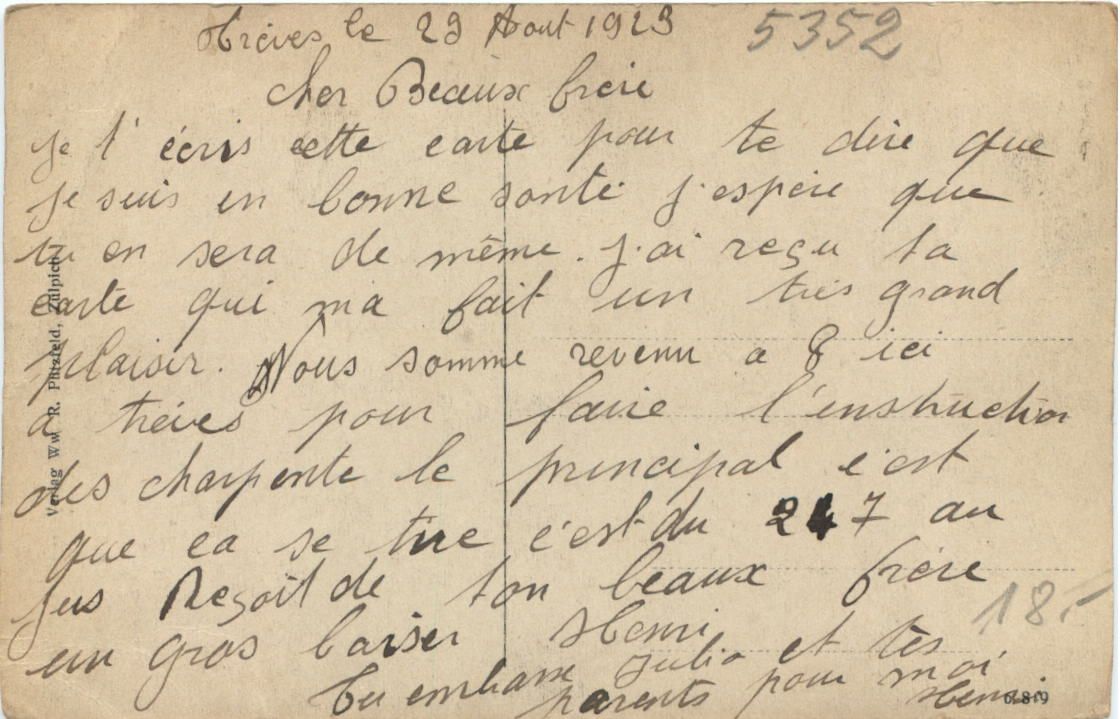 Trèves le 29 Aout 1923
5352
cher Beaux frère
je t'écris cette carte pour te dire que
je suis en bonne santé j'espère que
tu en sera de même. j'ai reçu ta
carte qui ma fait un très grand
plaisir. Nous somme revenu a 8 ici
a trèves pour faire l'enstruction
des charpente le principal c'est
que ca se tire c'est du 247 au
jus Reçoit de ton beaux frère
un gros baiser Henri
tu embrasse Julia et tès
parents pour moi
Henri
18.-
Verlag Ww. R. Pützfeld, Zülpich